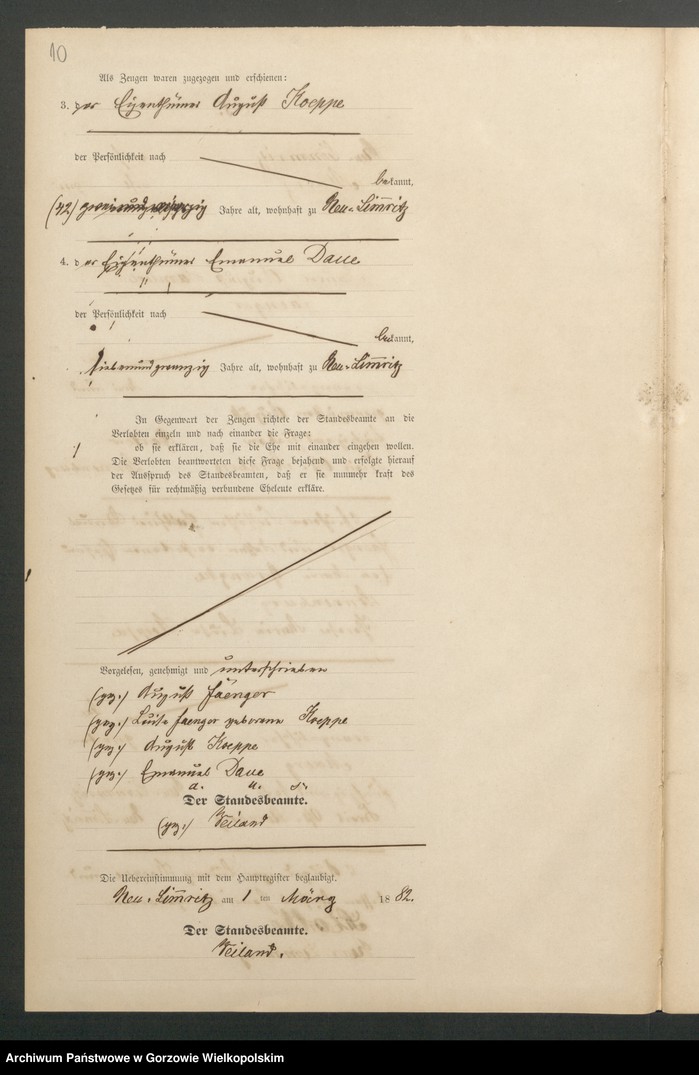 10
Als Zeugen waren zugezogen und erschienen:
3. der Eigenthümer August Koeppe
der Persönlichkeit nach
bekannt,
(42) zweiundvierzig Jahre alt, wohnhaft zu Neu-Lim̅ritz
4. der Eigenthümer Emanuel Daue
der Persönlichkeit nach
bekannt,
siebenundzwanzig Jahre alt, wohnhaft zu Neu-Lim̅ritz
In Gegenwart der Zeugen richtete der Standesbeamte an die
Verlobten einzeln und nach einander die Frage:
ob sie erklären, daß sie die Ehe mit einander eingehen wollen.
Die Verlobten beantworteten diese Frage bejahend und erfolgte hierauf
der Ausspruch des Standesbeamten, daß er sie nunmehr kraft des
Gesetzes für rechtmäßig verbundene Eheleute erkläre.
Vorgelesen, genehmigt und unterschrieben
(gez.) August Faenger
(gez.) Luise Faenger geborene Koeppe
(gez.) August Koeppe
(gez.) Emanuel Daue
Der Standesbeamte.
(gez.) Weiland
Die Uebereinstimmung mit dem Hauptregister beglaubigt.
Neu-Lim̅ritz am 1 ten März 1882.
Der Standesbeamte.
Weiland.
Archiwum Państwowe w Gorzowie Wielkopolskim